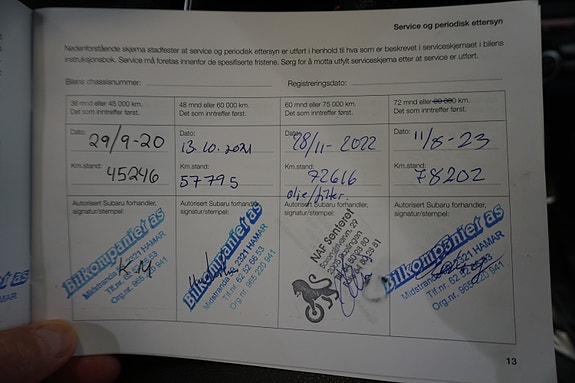 Service og periodisk ettersyn
Nedenforstående skjema stadfester at service og periodisk ettersyn er utført i henhold til hva som er beskrevet i serviceskjemaet i bilens
instruksjonsbok. Service må foretas innenfor de spesifiserte fristene. Sørg for å motta utfylt serviceskjema etter at service er utført.
Bilens chassisnummer: Registreringsdato:
36 mnd eller 45 000 km.
Det som inntreffer først.
Dato:
29/9-20
Km.stand:
45246
Autorisert Subaru forhandler,
signatur/stempel:
Bilkompaniet as
Midtstranda 2321 HAMAR
Tlf.nr. 62
Org.nr. 965 220 941
KM
48 mnd eller 60 000 km.
Det som inntreffer først.
Dato:
13.10.2021
Km.stand:
57795
Autorisert Subaru forhandler,
signatur/stempel:
Bilkompaniet as
Midtstranda 2321 HAMAR
Tlf.nr. 62 52 66 53
Org.nr. 965 220 941
60 mnd eller 75 000 km.
Det som inntreffer først.
Dato:
28/11-2022
Km.stand:
72616
olje/filter.
Autorisert Subaru forhandler,
signatur/stempel:
NAF Senteret
72 mnd eller 90 000 km.
Det som inntreffer først.
Dato:
11/8-23
Km.stand:
78202
Autorisert Subaru forhandler,
signatur/stempel:
Bilkompaniet as
Midtstranda 2321 HAMAR
Tlf.nr. 62 52
Org.nr. 965 220 941
13